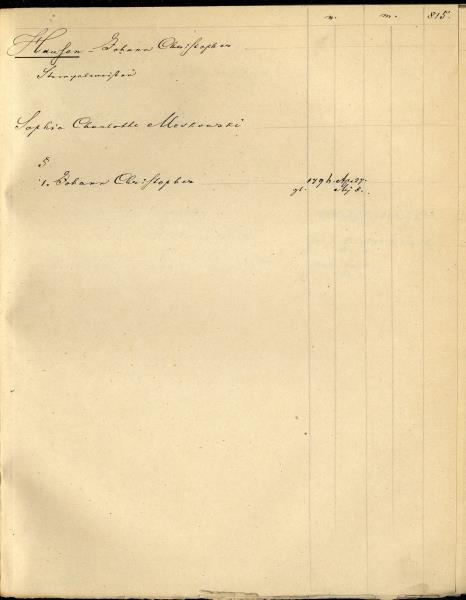 n. m. 815.
Hausen Johann Christopher
Stempelmeister
Sophia Charlotte Moskowski
§
1. Johann Christopher 1796 Apr 27.
gt. Mj 8.